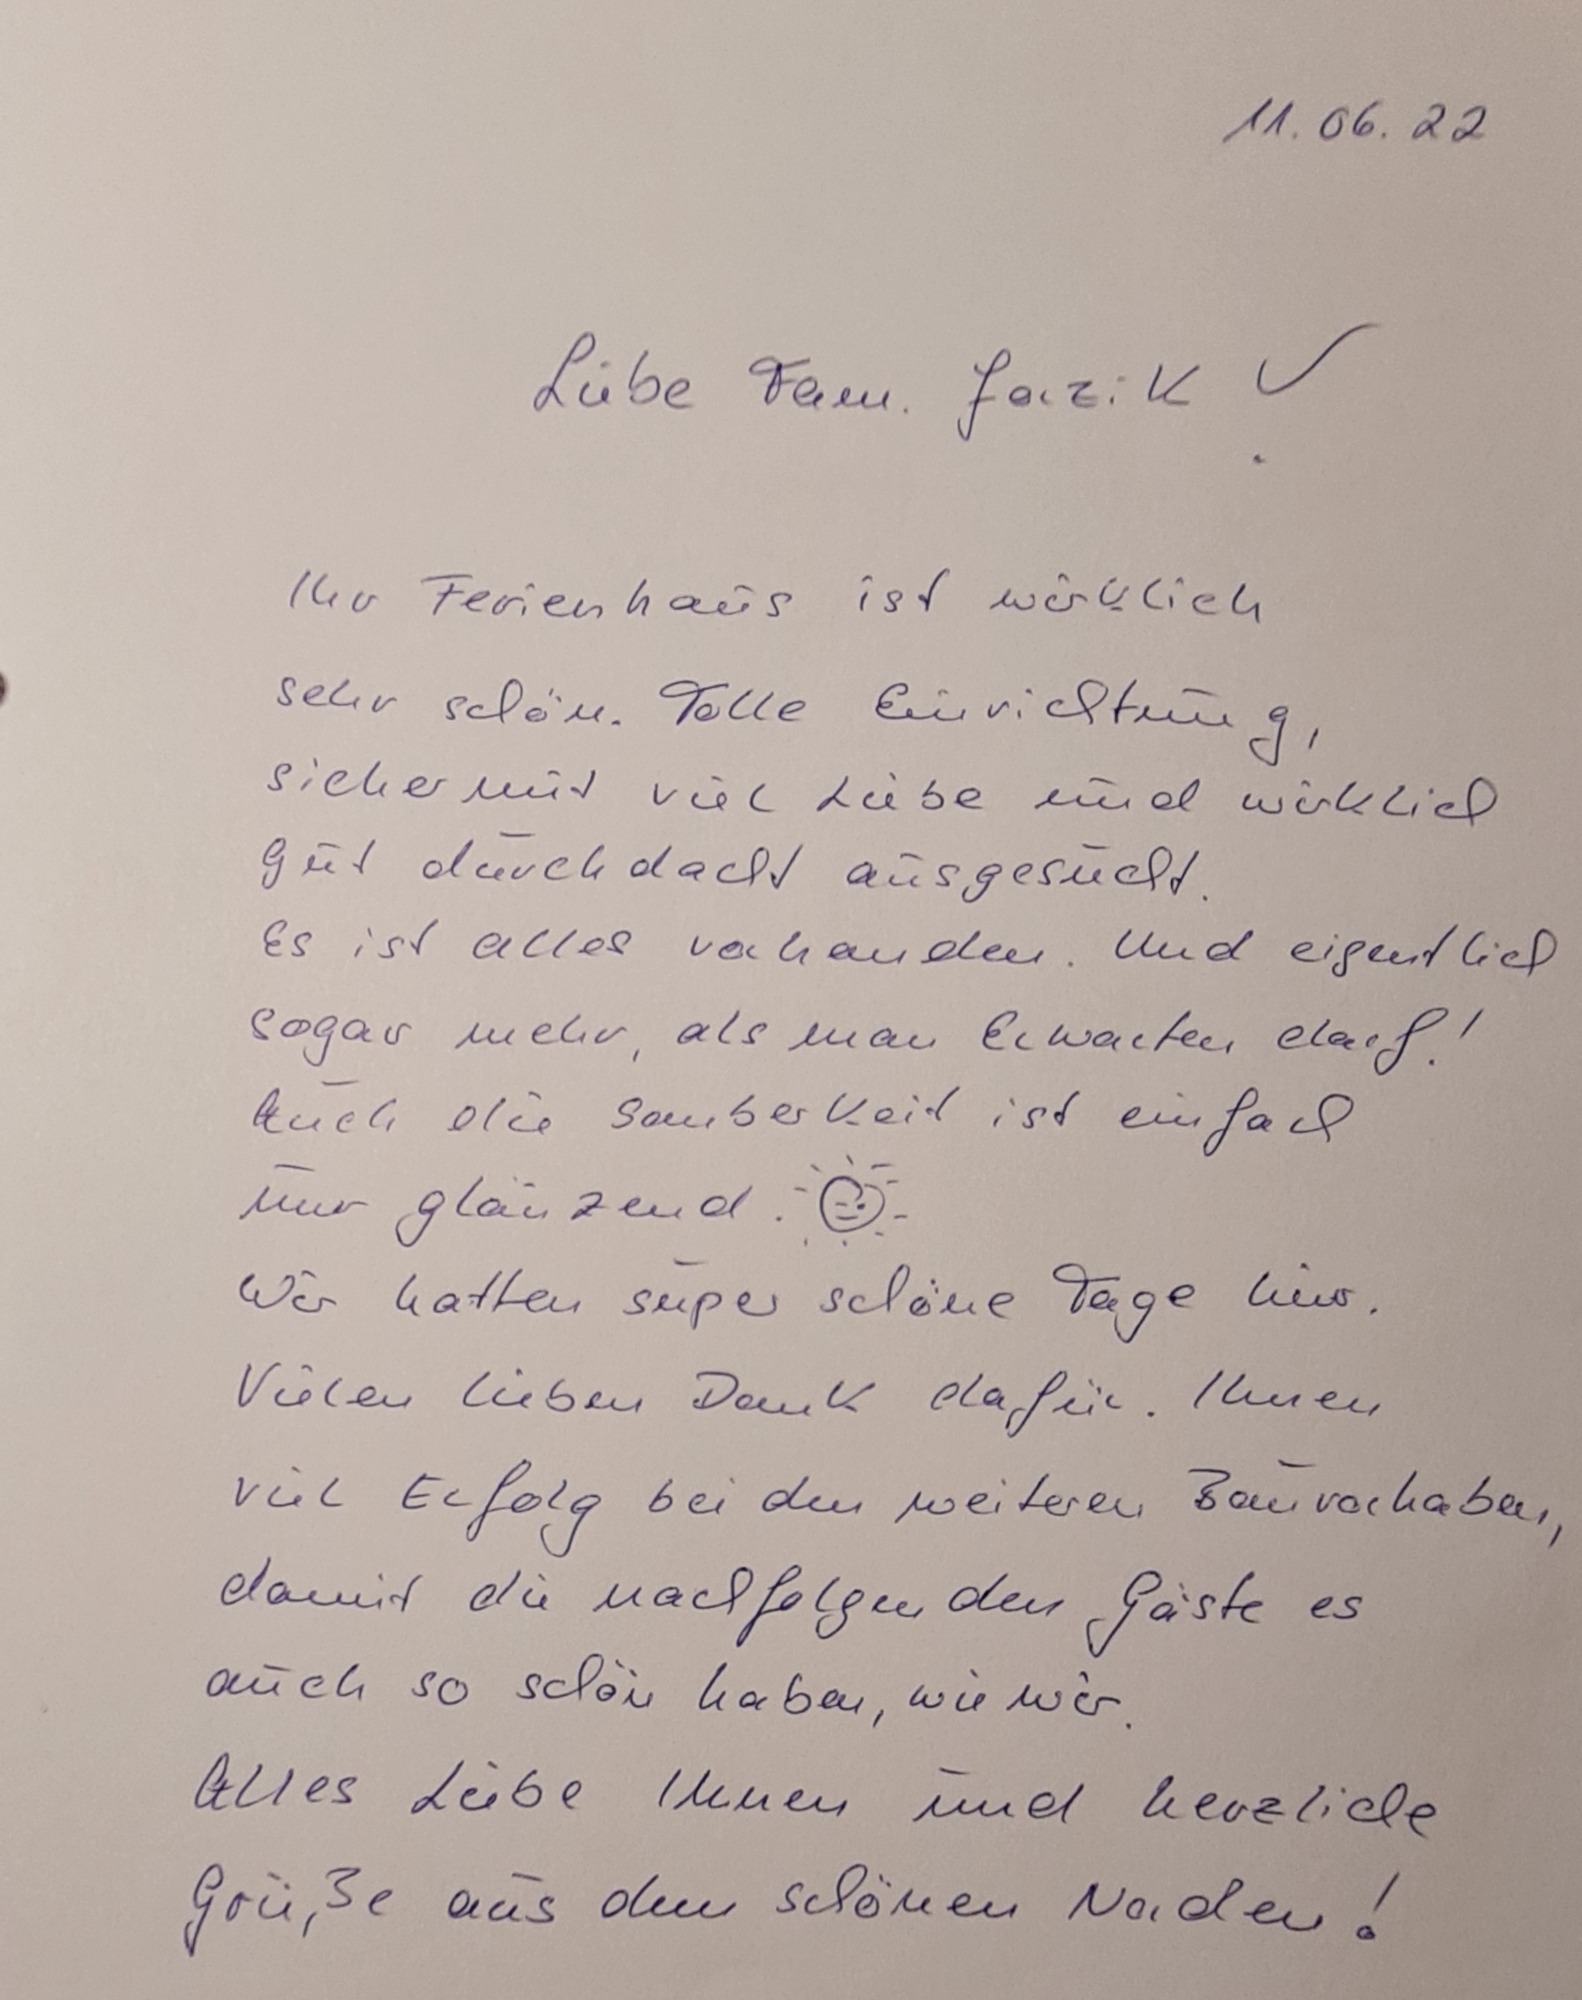 11.06.22
Liebe Fam. Jazik!
Ihr Ferienhaus ist wirklich
sehr schön. Tolle Einrichtung,
sicher mit viel Liebe und wirklich
gut durchdacht ausgesucht.
Es ist alles vorhanden. Und eigentlich
sogar mehr, als man Erwarten darf!
Auch die Sauberkeit ist einfach
nur glänzend.
Wir hatten super schöne Tage hier.
Vielen lieben Dank dafür. Ihnen
viel Erfolg bei den weiteren Bauvorhaben,
damit die nachfolgenden Gäste es
auch so schön haben, wie wir.
Alles Liebe Ihnen und herzliche
Grüße aus dem schönen Norden!